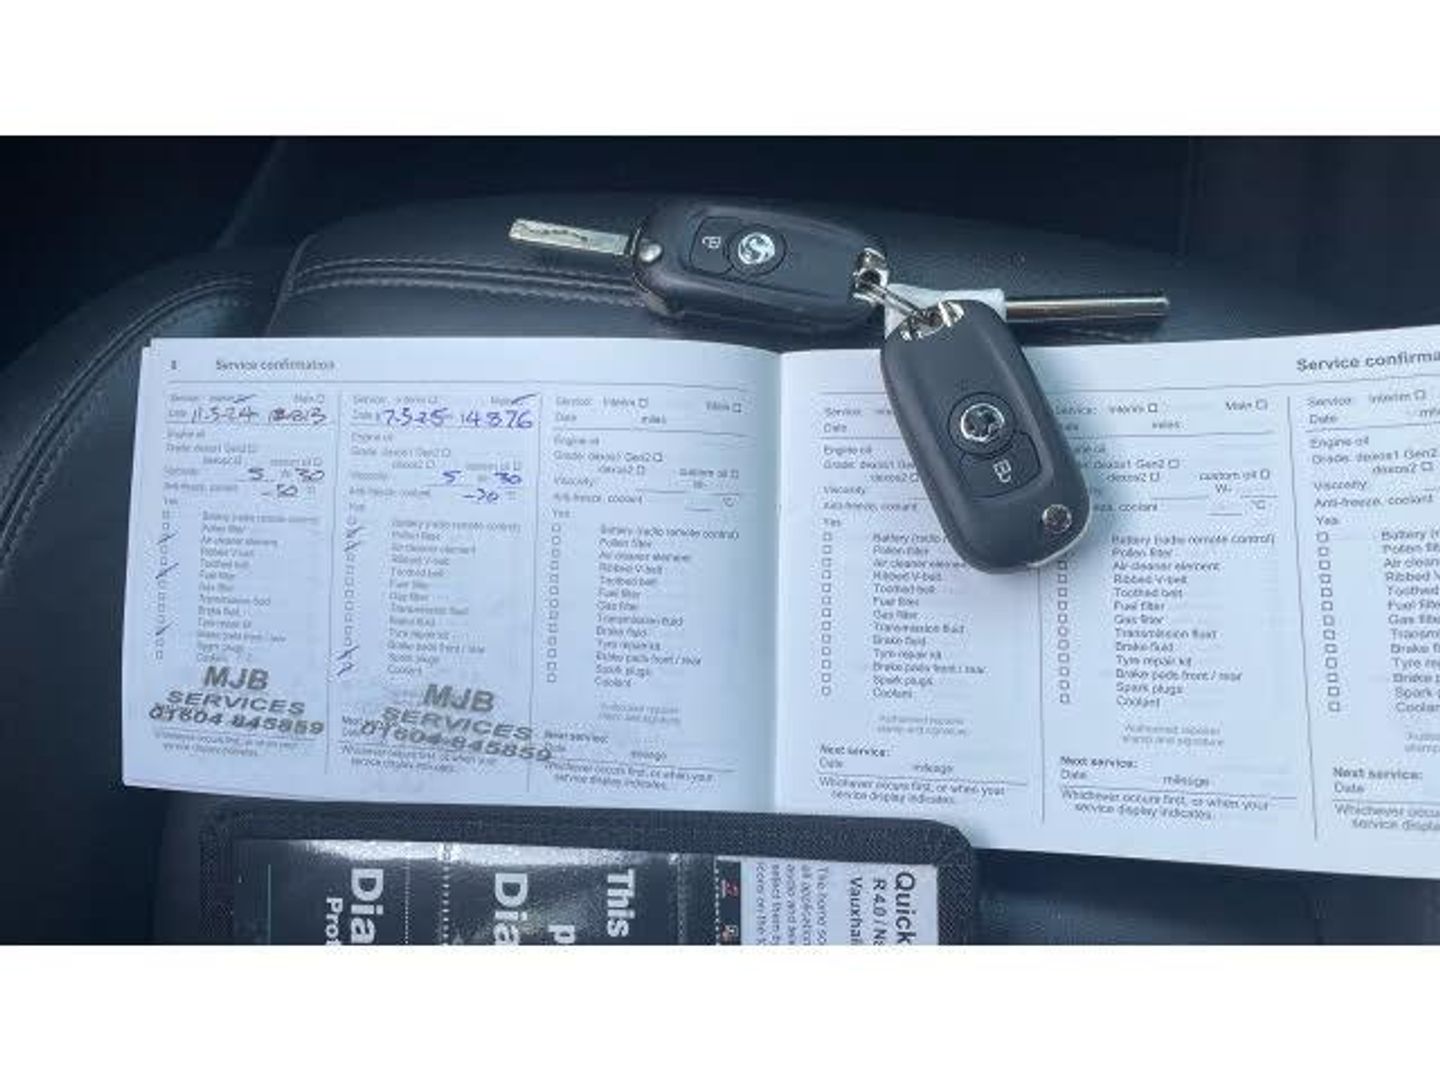 8 Service confirmation
Service: Interim Main
Date 11.3.24
Engine oil
Grade: dexos1 Gen2
dexos2 custom oil
Viscosity: 5 W 30
Anti-freeze, coolant -30 °C
Yes
Battery (radio remote control)
Pollen filter
Air cleaner element
Ribbed V-belt
Toothed belt
Fuel filter
Gas filter
Transmission fluid
Brake fluid
Tyre repair kit
Brake pads front / rear
Spark plugs
Coolant
MJB
SERVICES
01604 845859
Whichever occurs first, or when your
service display indicates.
Service: Interim Main
Date 17.3.25 14876
Engine oil
Grade: dexos1 Gen2
dexos2 custom oil
Viscosity: 5 W 30
Anti-freeze, coolant °C
Yes
Battery (radio remote control)
Pollen filter
Air cleaner element
Ribbed V-belt
Toothed belt
Fuel filter
Gas filter
Transmission fluid
Brake fluid
Tyre repair kit
Brake pads front / rear
Spark plugs
Coolant
MJB
SERVICES
01604 845859
Whichever occurs first, or when your
service display indicates.
Service: Interim Main
Date miles
Engine oil
Grade: dexos1 Gen2
dexos2 custom oil
Viscosity: W-
Anti-freeze, coolant °C
Yes
Battery (radio remote control)
Pollen filter
Air cleaner element
Ribbed V-belt
Toothed belt
Fuel filter
Gas filter
Transmission fluid
Brake fluid
Tyre repair kit
Brake pads front / rear
Spark plugs
Coolant
Authorised repairer
stamp and signature
Next service:
mileage
Whichever occurs first, or when your
service display indicates.
Service confirma
Service:
Date
Engine oil
Grade: dexos1 Gen2
dexos2
Viscosity
Anti-freeze, coolant
Yes
Battery (radio
Pollen filter
Air cleaner element
Ribbed V-belt
Toothed belt
Fuel filter
Gas filter
Transmission fluid
Brake fluid
Tyre repair kit
Brake pads front / rear
Spark plugs
Coolant
Authorised repairer
stamp and signature
Next service:
Date mileage
Whichever occurs first, or when your
service display indicates.
Service: Interim Main
miles
dexos1 Gen2
dexos2 custom oil
W- °C
coolant
Battery (radio remote control)
Pollen filter
Air cleaner element
Ribbed V-belt
Toothed belt
Fuel filter
Gas filter
Transmission fluid
Brake fluid
Tyre repair kit
Brake pads front / rear
Spark plugs
Coolant
Authorised repairer
stamp and signature
Next service:
Date mileage
Whichever occurs first, or when your
service display indicates.
Service: Interim
Date
Engine oil
Grade: dexos1 Gen2
dexos2
Viscosity:
Anti-freeze, coolant
Yes
Battery (r
Pollen filte
Air clean
Ribbed V
Toothed
Fuel filte
Gas filte
Transm
Brake f
Tyre re
Brake p
Spark
Coolan
Next service:
Date
Whichever occurs
service displa
Dia
Pro
Dia
This
p
Quick
R 4.0 / Na
Vauxhal